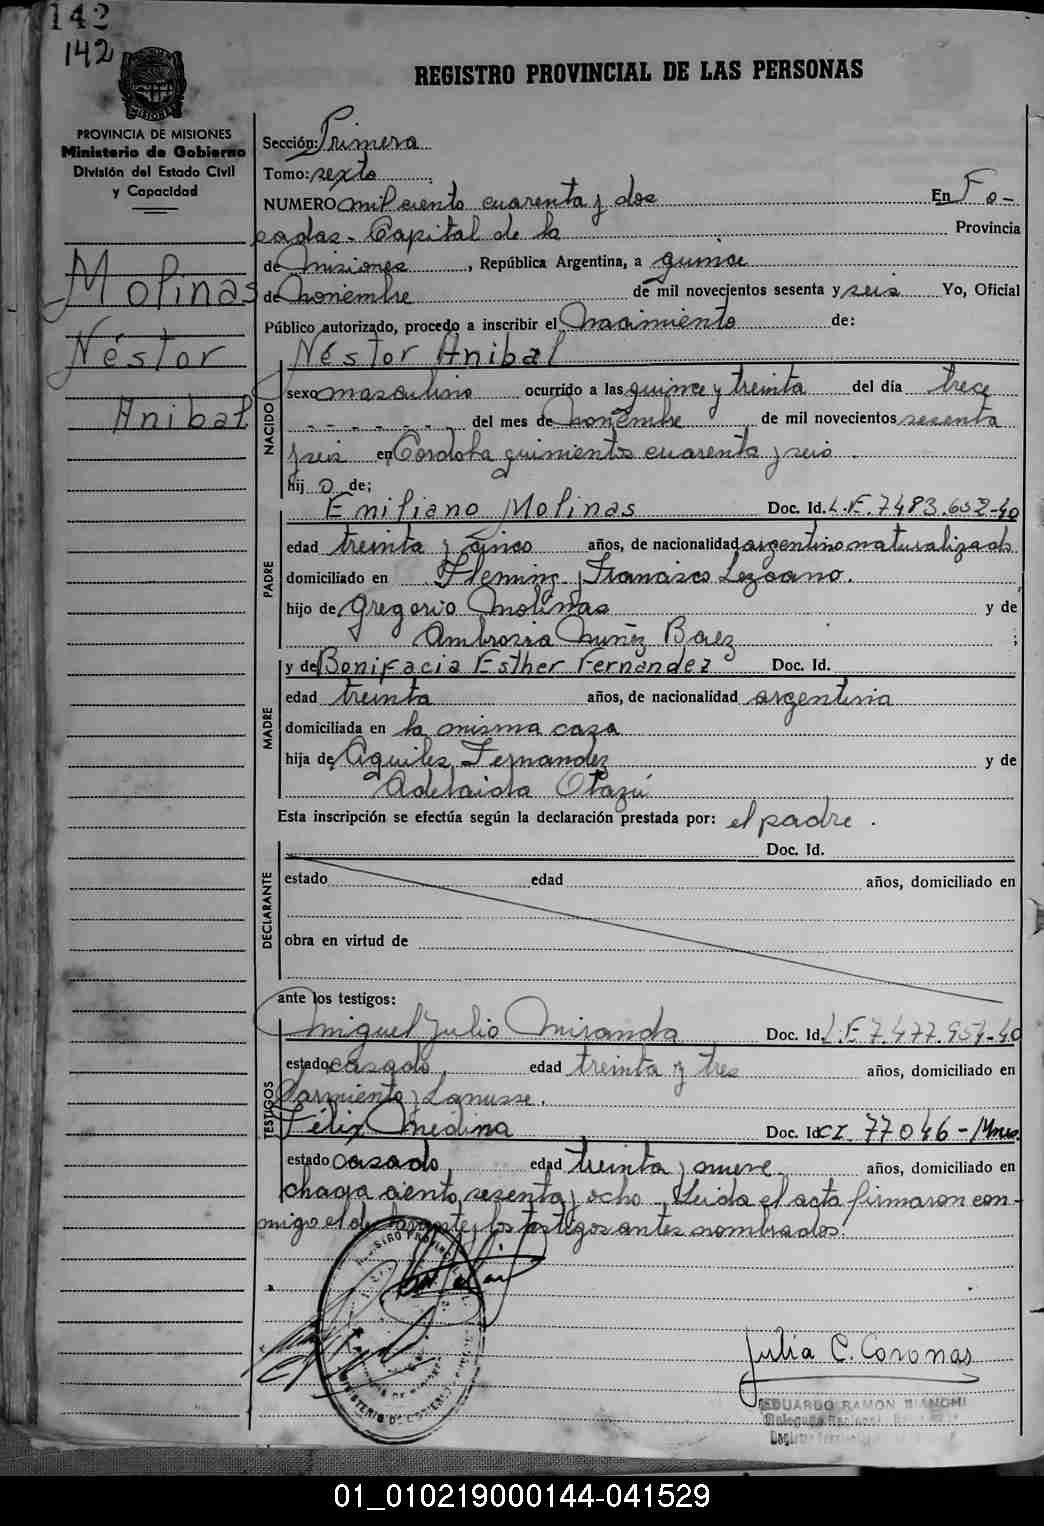 142
142
REGISTRO PROVINCIAL DE LAS PERSONAS
PROVINCIA DE MISIONES
Ministerio de Gobierno
División del Estado Civil
y Capacidad
Molinas
Néstor
Anibal
Sección: Primera
Tomo: sexto
NUMERO mil ciento cuarenta y dos En Po-
sadas - Capital de la Provincia
de Misiones, República Argentina, a quince
de noviembre de mil novecientos sesenta y seis Yo, Oficial
Público autorizado, procedo a inscribir el Nacimiento de:
Néstor Anibal
NACIDO
sexo masculino ocurrido a las quince y treinta del día trece
del mes de noviembre de mil novecientos sesenta
y seis en Córdoba quinientos cuarenta y seis.
hij o de;
PADRE
Emiliano Molinas Doc. Id. L.E. 7483.652-40
edad treinta y cinco años, de nacionalidad argentino naturalizado
domiciliado en Fleming y Francisco Lezcano.
hijo de Gregorio Molinas y de
Ambrosia Nuñez Baez ;
MADRE
y de Bonifacia Esther Fernandez Doc. Id.
edad treinta años, de nacionalidad argentina
domiciliada en la misma casa
hija de Aquiles Fernandez y de
Adelaida Otazú
Esta inscripción se efectúa según la declaración prestada por: el padre.
DECLARANTE
Doc. Id.
estado edad años, domiciliado en
obra en virtud de
ante los testigos:
TESTIGOS
Miguel Julio Miranda Doc. Id. L.E 7.477.954-40
estado casado, edad treinta y tres años, domiciliado en
Sarmiento y Lanusse.
Félix Medina Doc. Id CI. 77046-Mnes.
estado casado, edad treinta y nueve años, domiciliado en
chaga ciento sesenta y ocho - Leida el acta firmaron con-
migo el declarante y los testigos antes nombrados.
REGISTRO PROVINCIAL
MINISTERIO DE GOBIERNO
Julia C. Coronas
EDUARDO RAMON BIANCHI
01_010219000144-041529